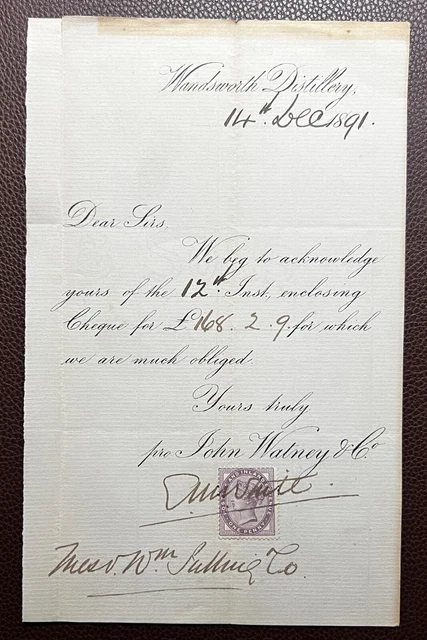 Wandsworth Distillery,
14th Dec 1891.
Dear Sirs.
We beg to acknowledge
yours of the 12th Inst, enclosing
Cheque for £168. 2. 9. for which
we are much obliged
Yours truly,
pro John Watney & Co
INLAND
ONE PENNY
Messrs. Wm Co.